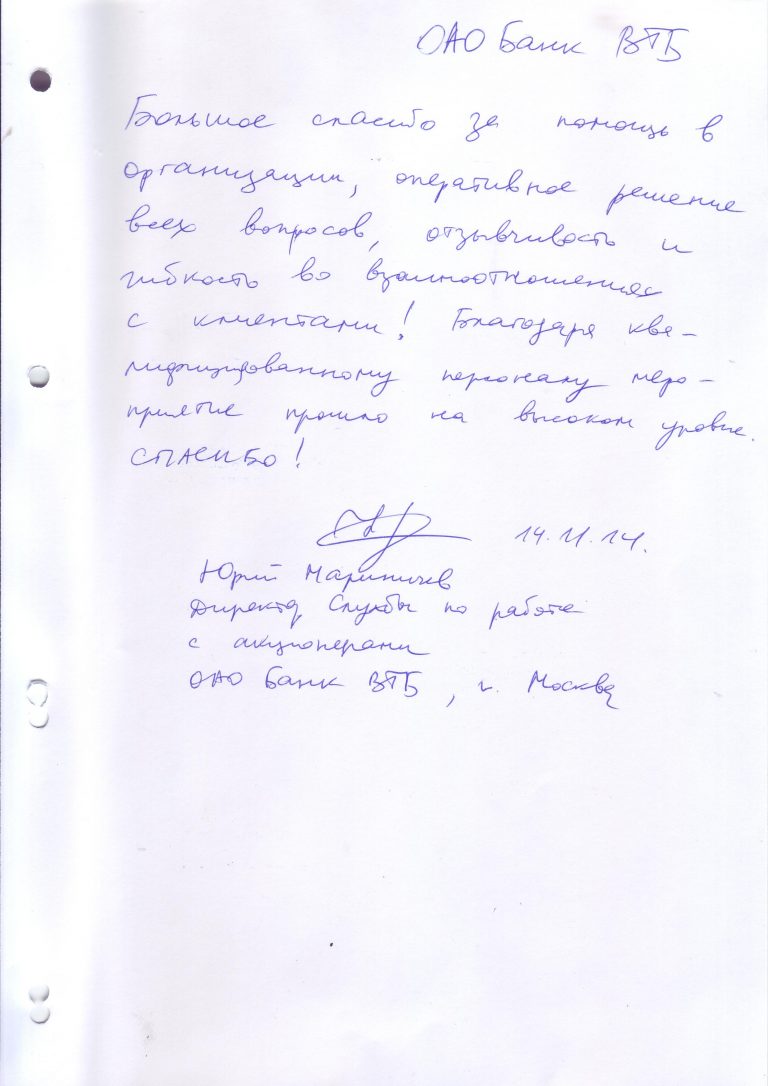 ОАО Банк ВТБ
Большое спасибо за помощь в
организации, оперативное решение
всех вопросов, отзывчивость и
гибкость во взаимоотношениях
с клиентами! Благодаря ква-
лифицированному персоналу меро-
приятие прошло на высоком уровне.
СПАСИБО!
14.11.14.
Юрий Мариничев
Директор Службы по работе
с акционерами
ОАО Банк ВТБ, г. Москва